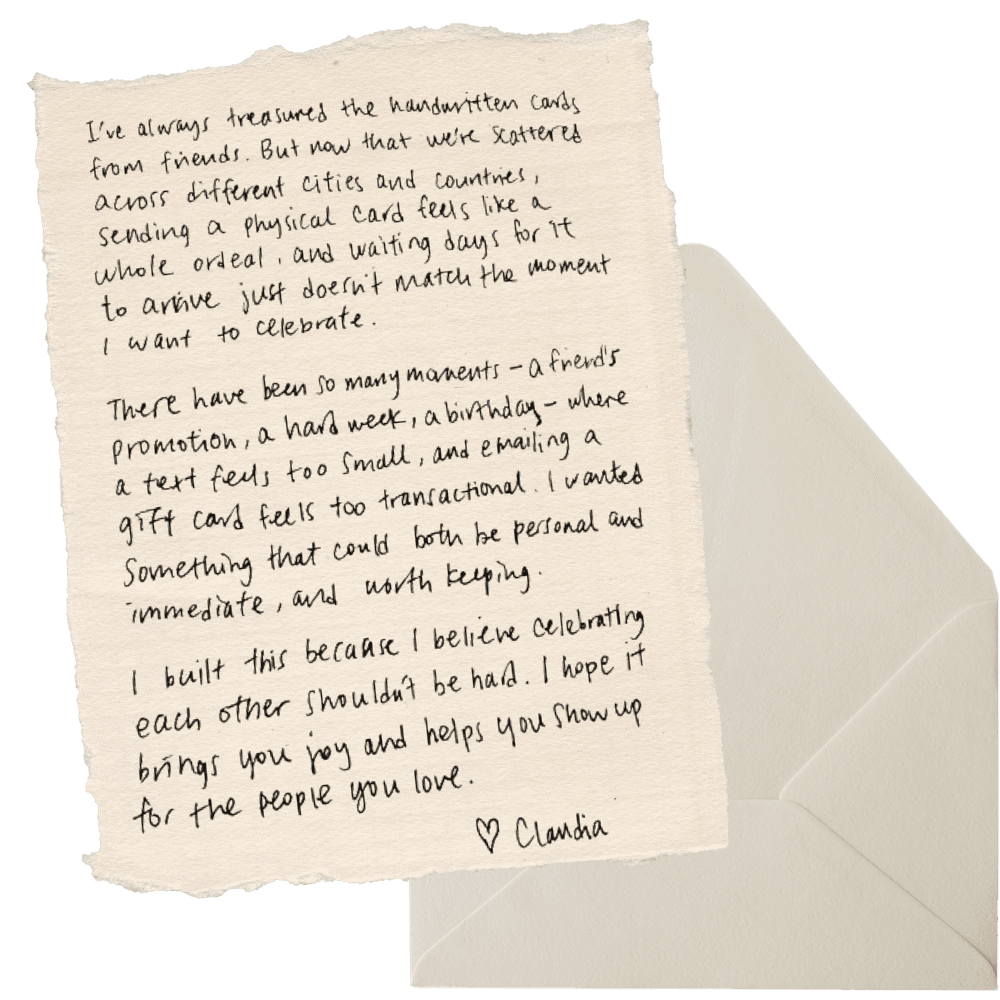 I've always treasured the handwritten cards
from friends. But now that we're scattered
across different cities and countries,
sending a physical card feels like a
whole ordeal, and waiting days for it
to arrive just doesn't match the moment
I want to celebrate.
There have been so many moments – a friend's
promotion, a hard week, a birthday – where
a text feels too small, and emailing a
gift card feels too transactional. I wanted
something that could both be personal and
immediate, and worth keeping.
I built this because I believe celebrating
each other shouldn't be hard. I hope it
brings you joy and helps you show up
for the people you love.
♡ Claudia